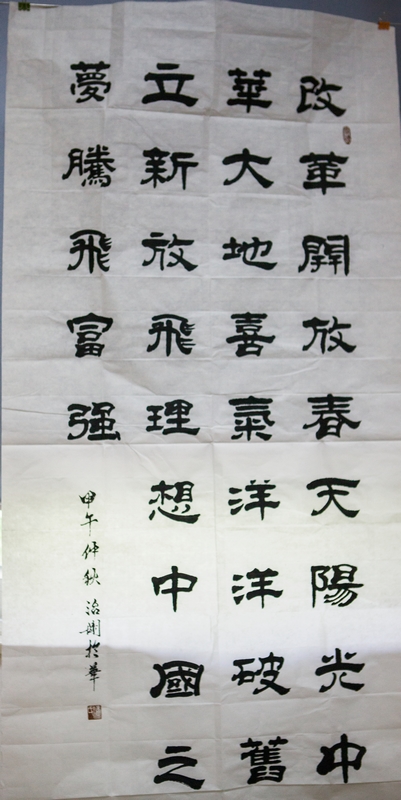 改革開放春天陽光中
華大地喜氣洋洋破舊
立新放飛理想中國之
夢騰飛富强
甲午仲秋治